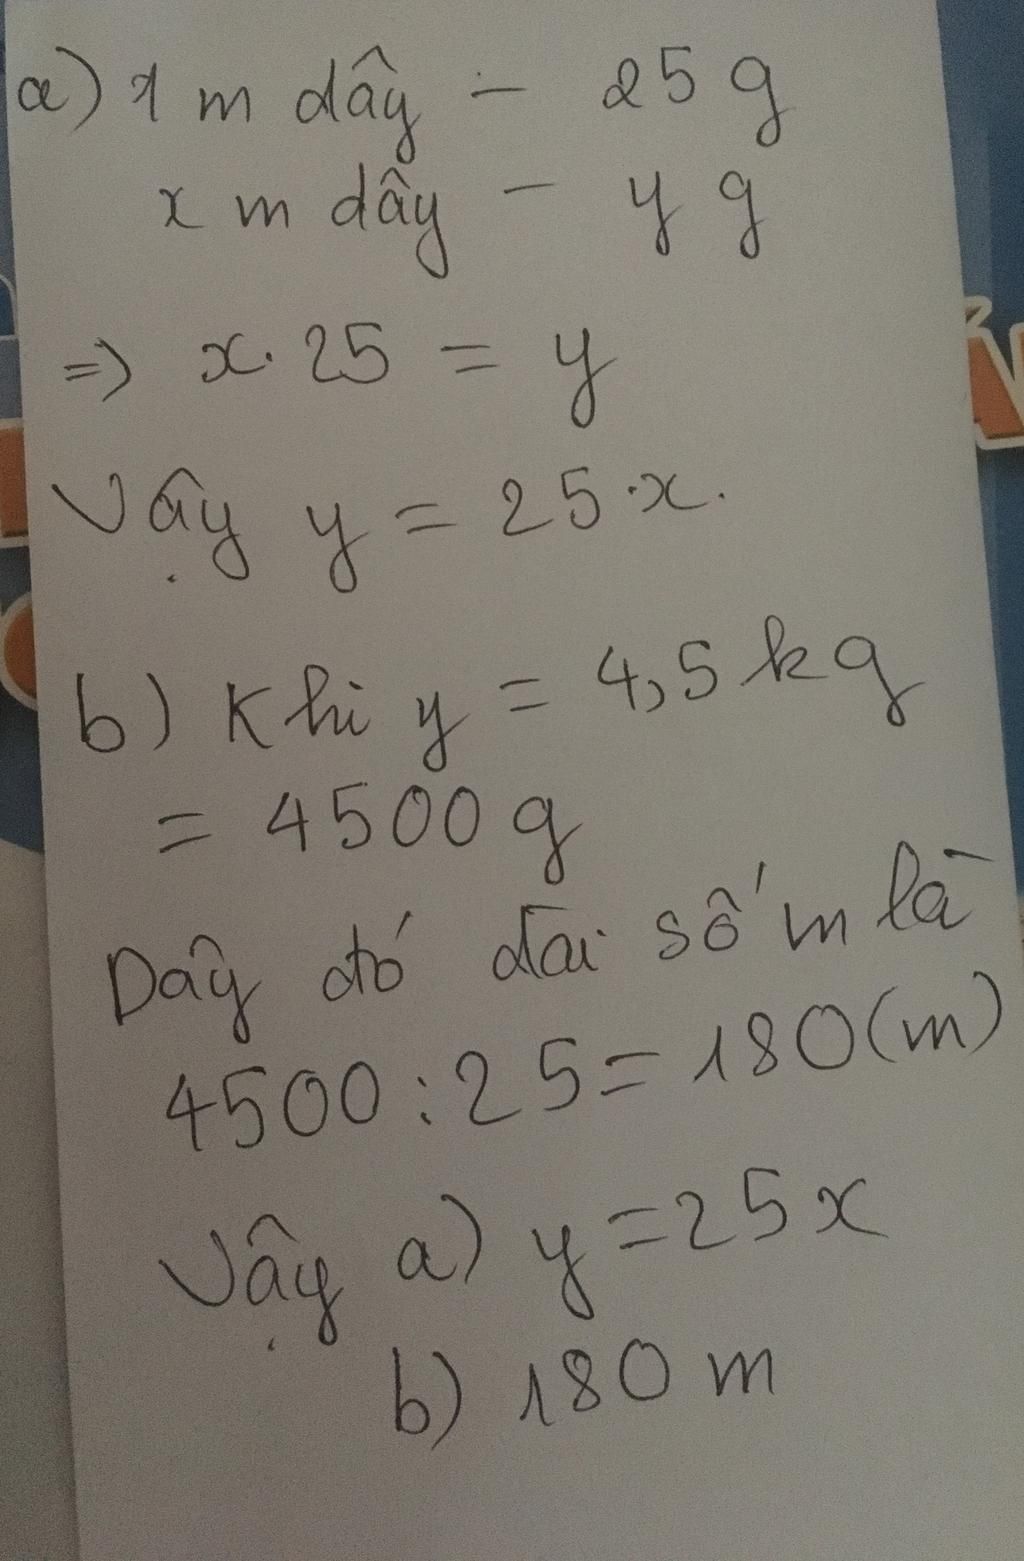 a) 1 m dây - 25 g
x m dây - y g
=> x. 25 = y
Vậy y = 25.x.
b) Khi y = 4,5 kg
= 4500 g
Dây đó dài số m là
4500 : 25 = 180 (m)
Vậy a) y = 25x
b) 180 m